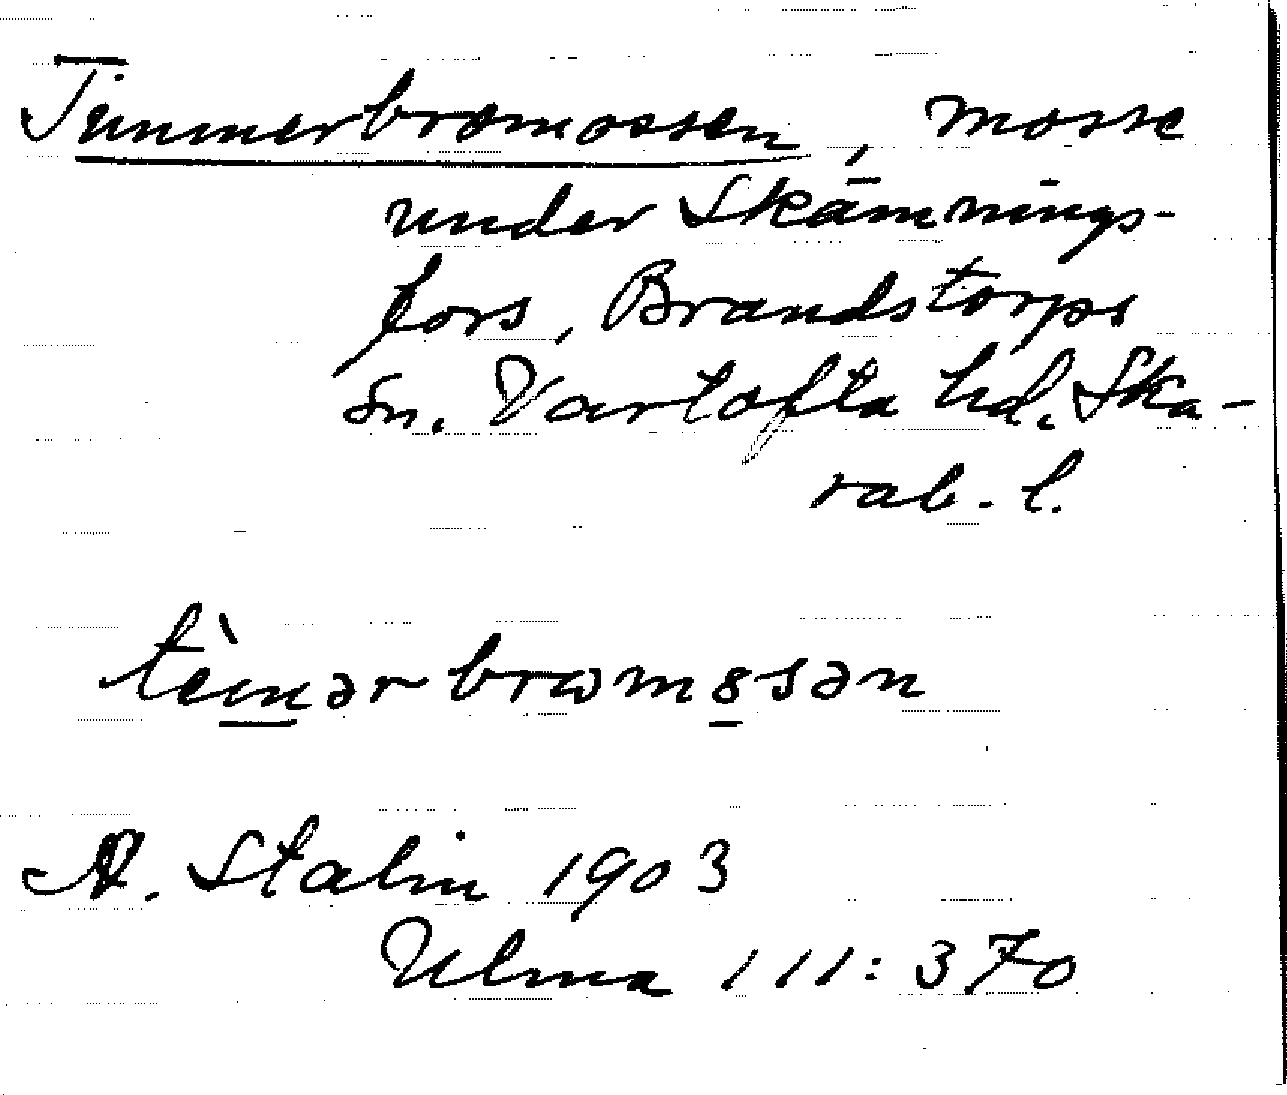 Timmerbromossen, mosse
under Skämnings-
fors, Brandstorps
sn. Vartofta hd. Ska-
rab. l.
tèmər brωmɞsən
A. Stalin 1903
Ulma 111:370